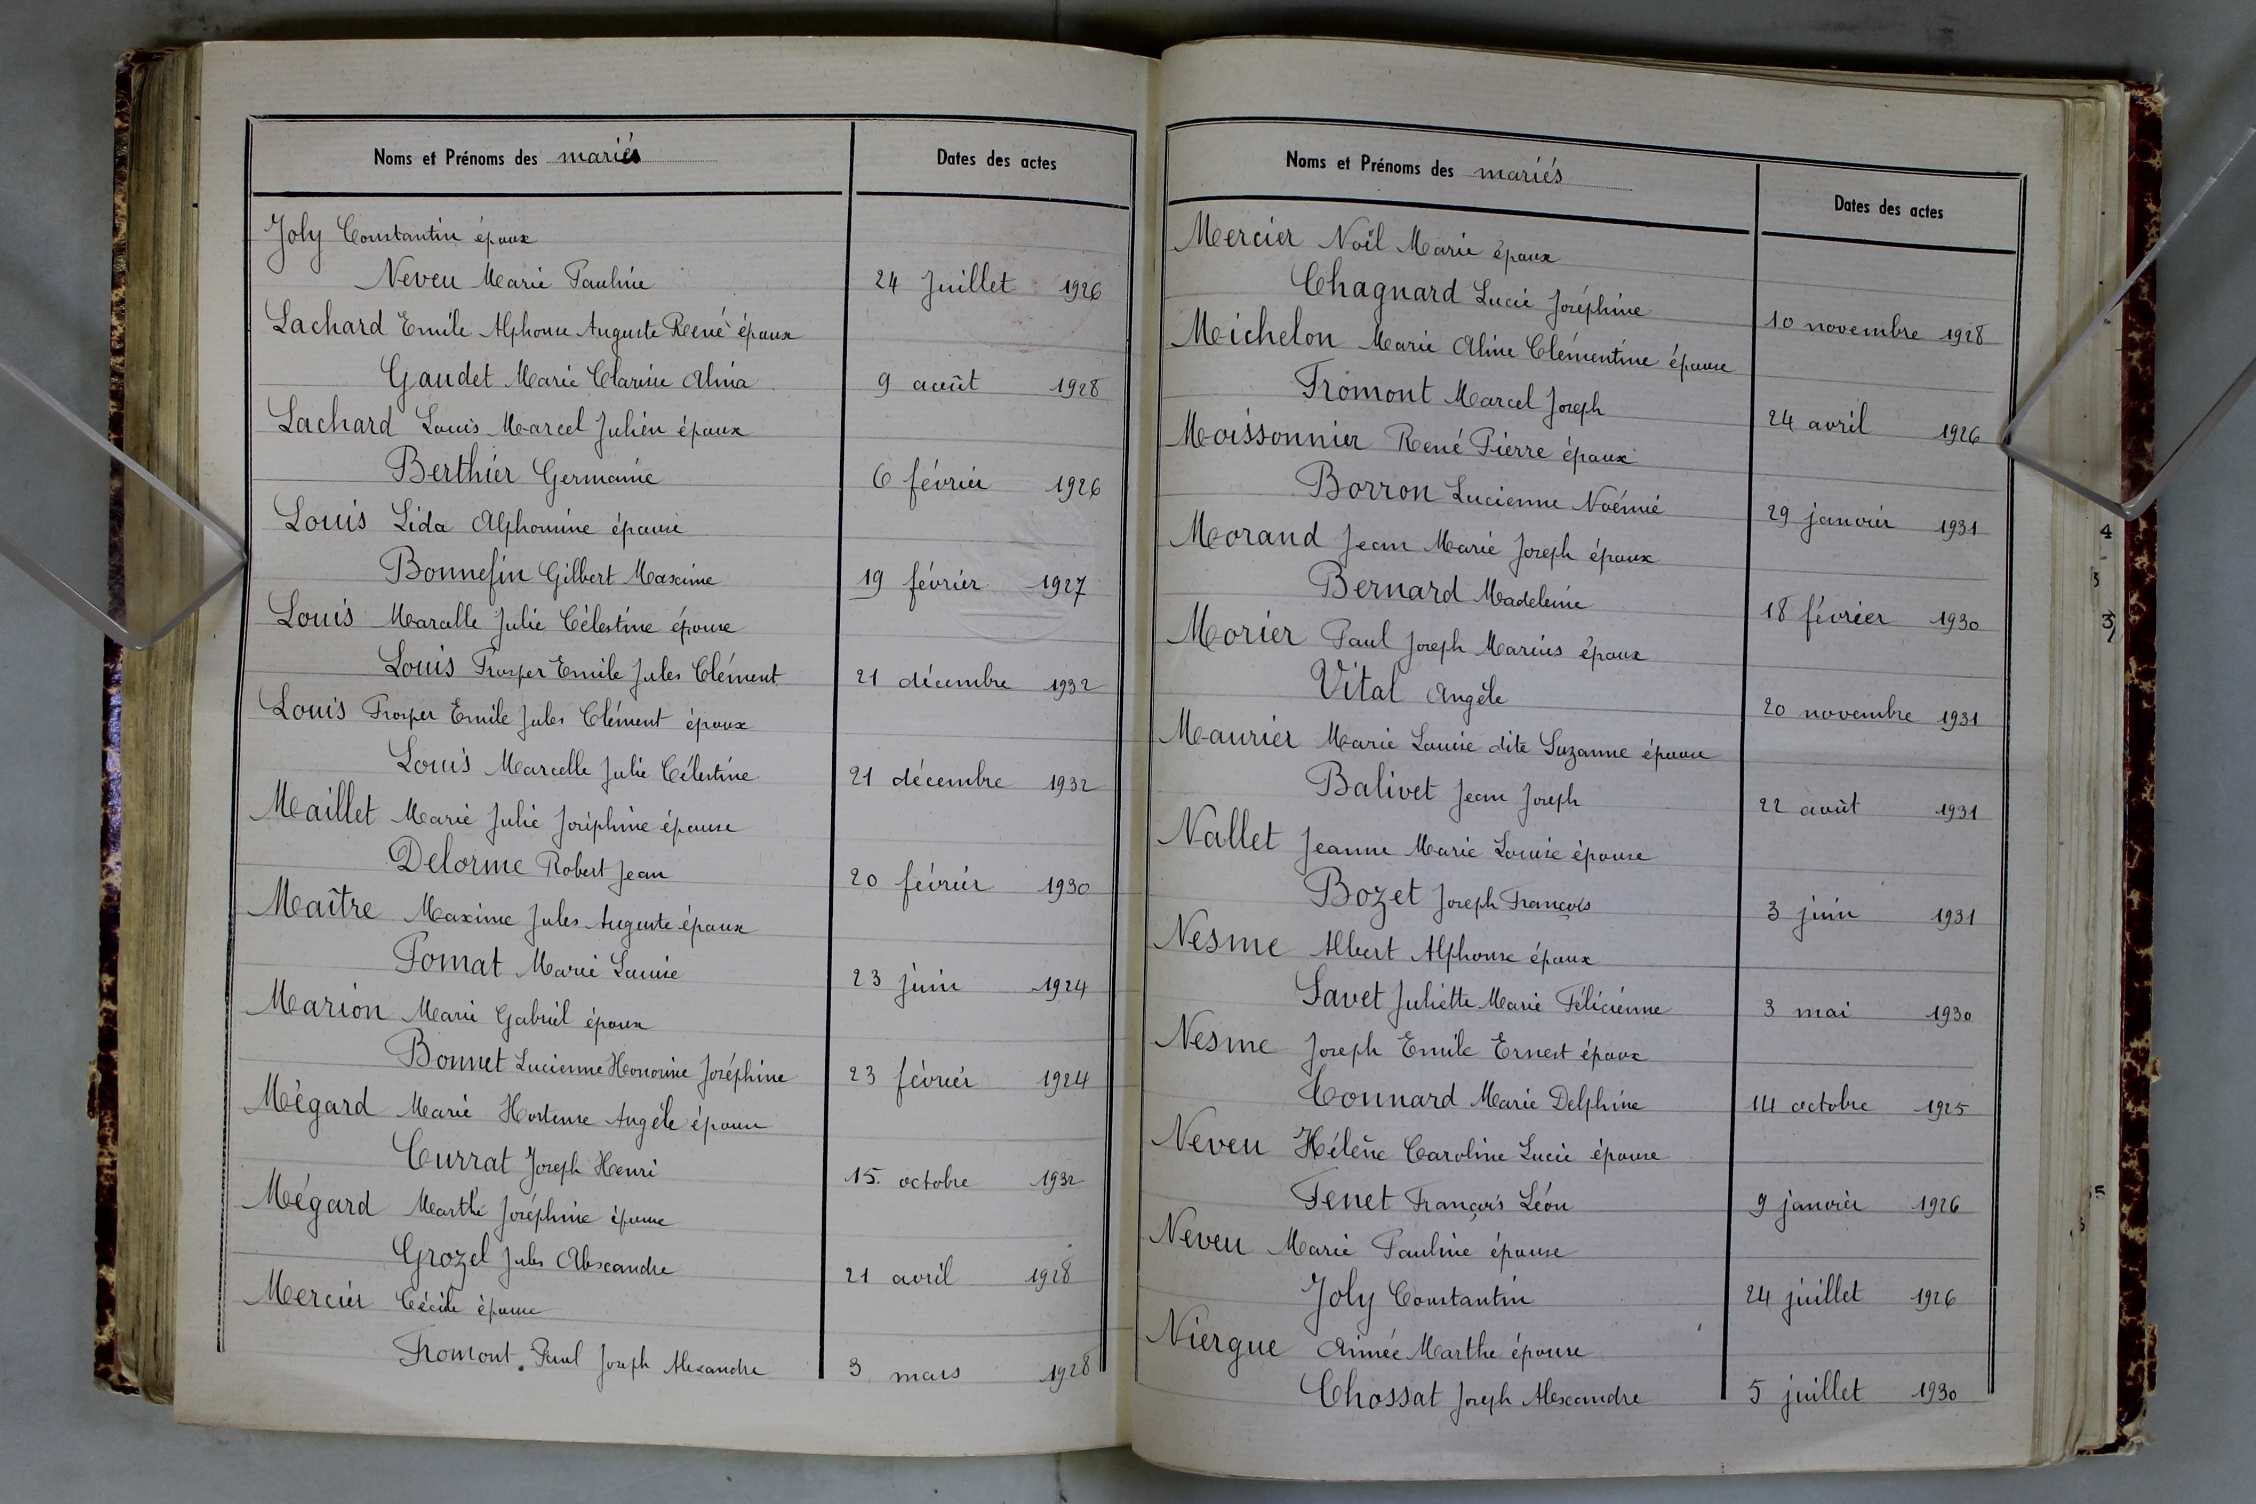 Noms et Prénoms des mariés
Dates des actes
Joly Constantin époux
Neveu Marie Pauline 24 Juillet 1926
Lachard Emile Alphonse Auguste René époux
Gaudet Marie Clarisse Alina 9 août 1928
Lachard Louis Marcel Julien époux
Berthier Germaine 6 février 1926
Louis Lida Alphonsine épouse
Bonnefin Gilbert Maxime 19 février 1927
Louis Marcelle Julie Célestine épouse
Louis Prosper Emile Jules Clément 21 décembre 1932
Louis Prosper Emile Jules Clément époux
Louis Marcelle Julie Célestine 21 décembre 1932
Maillet Marie Julie Joséphine épouse
Delorme Robert Jean 20 février 1930
Maître Maxime Jules Auguste époux
Pomat Marie Louise 23 juin 1924
Marion Marie Gabriel époux
Bonnet Lucienne Honorine Joséphine 23 février 1924
Mégard Marie Hortense Angèle épouse
Currat Joseph Henri 15. octobre 1932
Mégard Marthe Joséphine épouse
Grozel Jules Alexandre 21 avril 1928
Mercier Cécile épouse
Fromont Paul Joseph Alexandre 3 mars 1928
Noms et Prénoms des mariés
Dates des actes
Mercier Noël Marie époux
Chagnard Lucie Joséphine 10 novembre 1928
Michelon Marie Aline Clémentine épouse
Fromont Marcel Joseph 24 avril 1926
Moissonnier René Pierre époux
Borron Lucienne Noémie 29 janvier 1931
Morand Jean Marie Joseph époux
Bernard Madeleine 18 février 1930
Morier Paul Joseph Marius époux
Vital Angèle 20 novembre 1931
Maurier Marie Louise dite Suzanne épouse
Balivet Jean Joseph 22 août 1931
Nallet Jeanne Marie Louise épouse
Bozet Joseph François 3 juin 1931
Nesme Albert Alphonse époux
Savet Juliette Marie Félicienne 3 mai 1930
Nesme Joseph Emile Ernest époux
Connard Marie Delphine 14 octobre 1925
Neveu Hélène Caroline Lucie épouse
Tenet François Léon 9 janvier 1926
Neveu Marie Pauline épouse
Joly Constantin 24 juillet 1926
Niergue Aimée Marthe épouse
Chossat Joseph Alexandre 5 juillet 1930